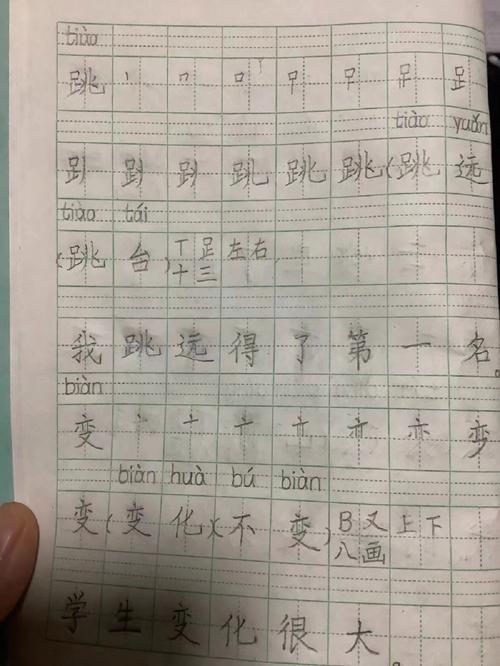 tiào
跳 丨 口 口 𧾷 足
tiào yuǎn
跳 跳 (跳 远
tiào tái
(跳 台) T 足 左右
十三
我 跳 远 得 了 第 一 名。
biàn
变 丶 亠 亦 变
biàn huà bú biàn
变 (变 化)(不 变) B 又 上下
八画
学 生 变 化 很 大。